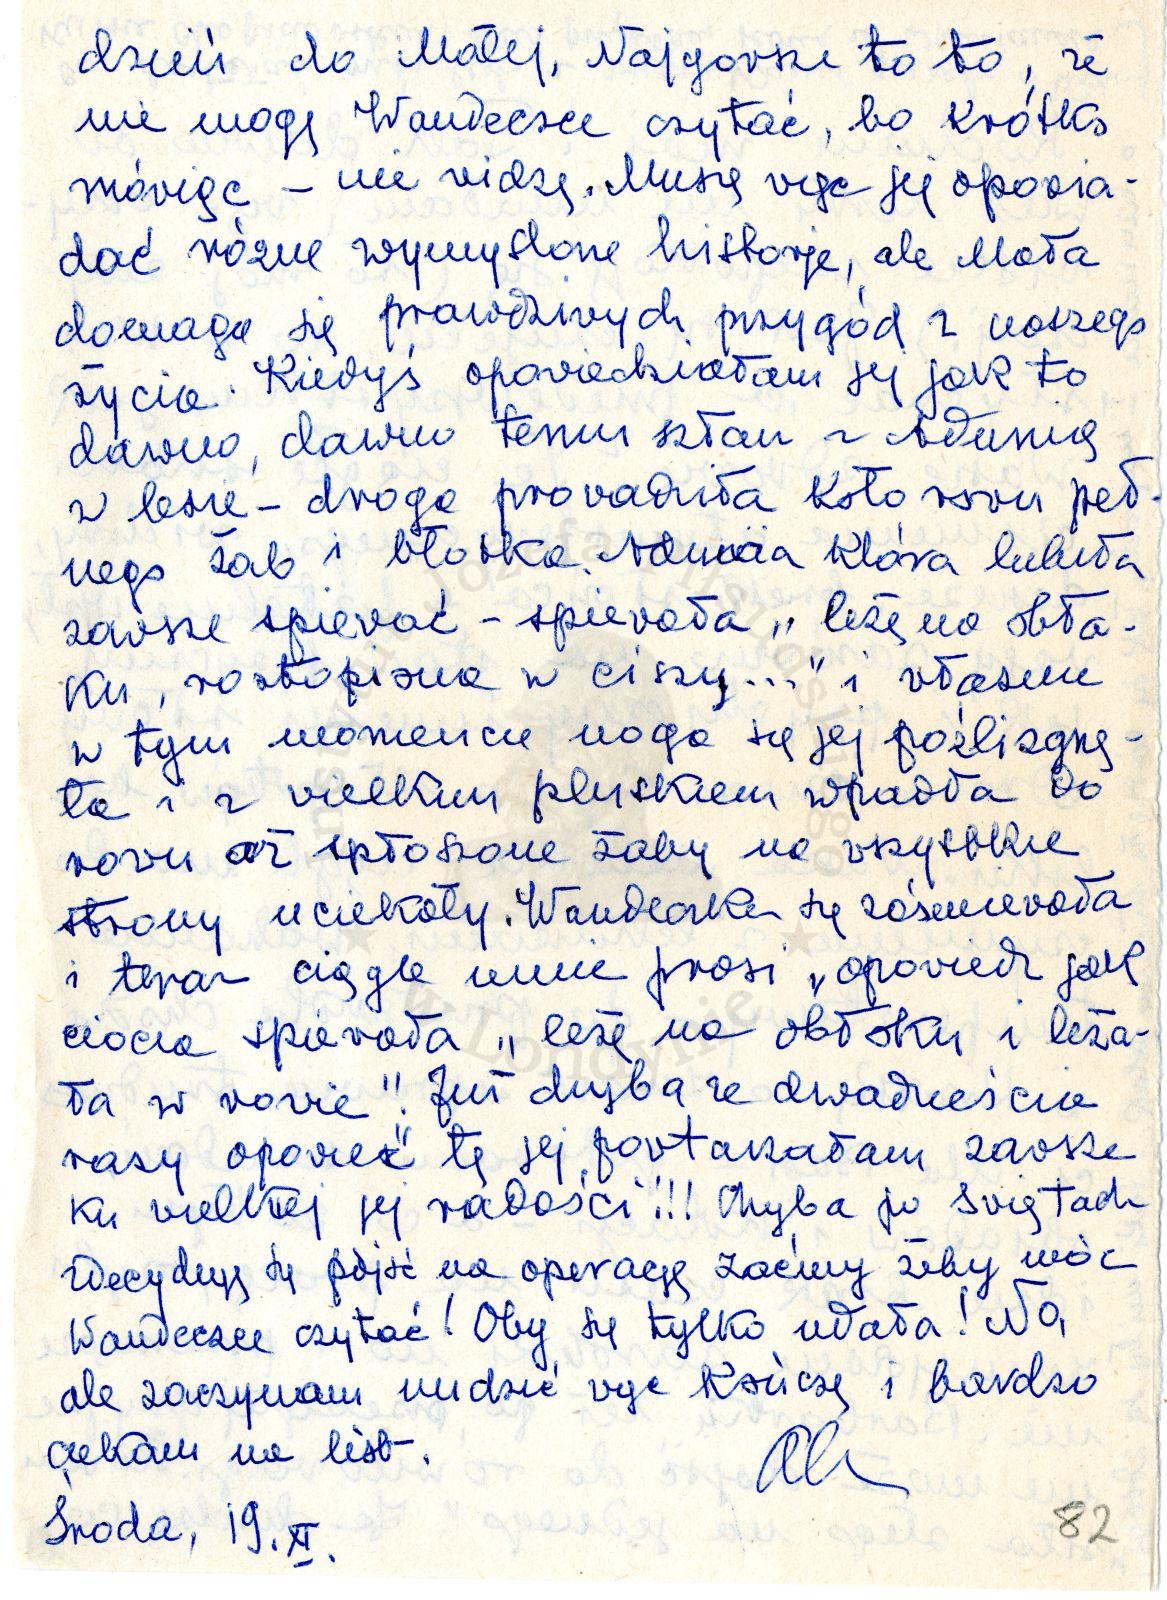 dzień do Małej, Najgorsze to to, że
nie mogę Wandeczce czytać, bo krótko
mówiąc – nie widzę. Muszę więc jej opowia-
dać różne wymyślone historje, ale Mała
domaga się prawdziwych przygód z naszego
życia. Kiedyś opowiedziałam jej jak to
dawno, dawno temu szłam z Adunią
w lesie – droga prowadziła koło rowu peł-
nego żab i błotka. Adunia która lubiła
zawsze śpiewać – śpiewała „leżę na obło-
ku, roztopiona w ciszy..." i właśnie
w tym momencie noga się jej poślizgnę-
ła i z wielkim pluskiem wpadła do
rowu aż spłoszone żaby na wszystkie
strony uciekały. Wandeczka się zaśmiewała
i teraz ciągle mnie prosi „opowiedz jak
ciocia śpiewała „leżę na obłoku i leża-
ła w rowie"! Już chyba ze dwadzieścia
razy opowieść tę jej powtarzałam zawsze
ku wielkiej jej radości!!! Chyba po Świętach
zdecyduję się pójść na operację zaćmy żeby móc
Wandeczce czytać! Oby się tylko udała! No,
ale zaczynam nudzić więc kończę i bardzo
czekam na list.
Środa, 19.XI.
82
Józefa Piłsudskiego
w Londynie